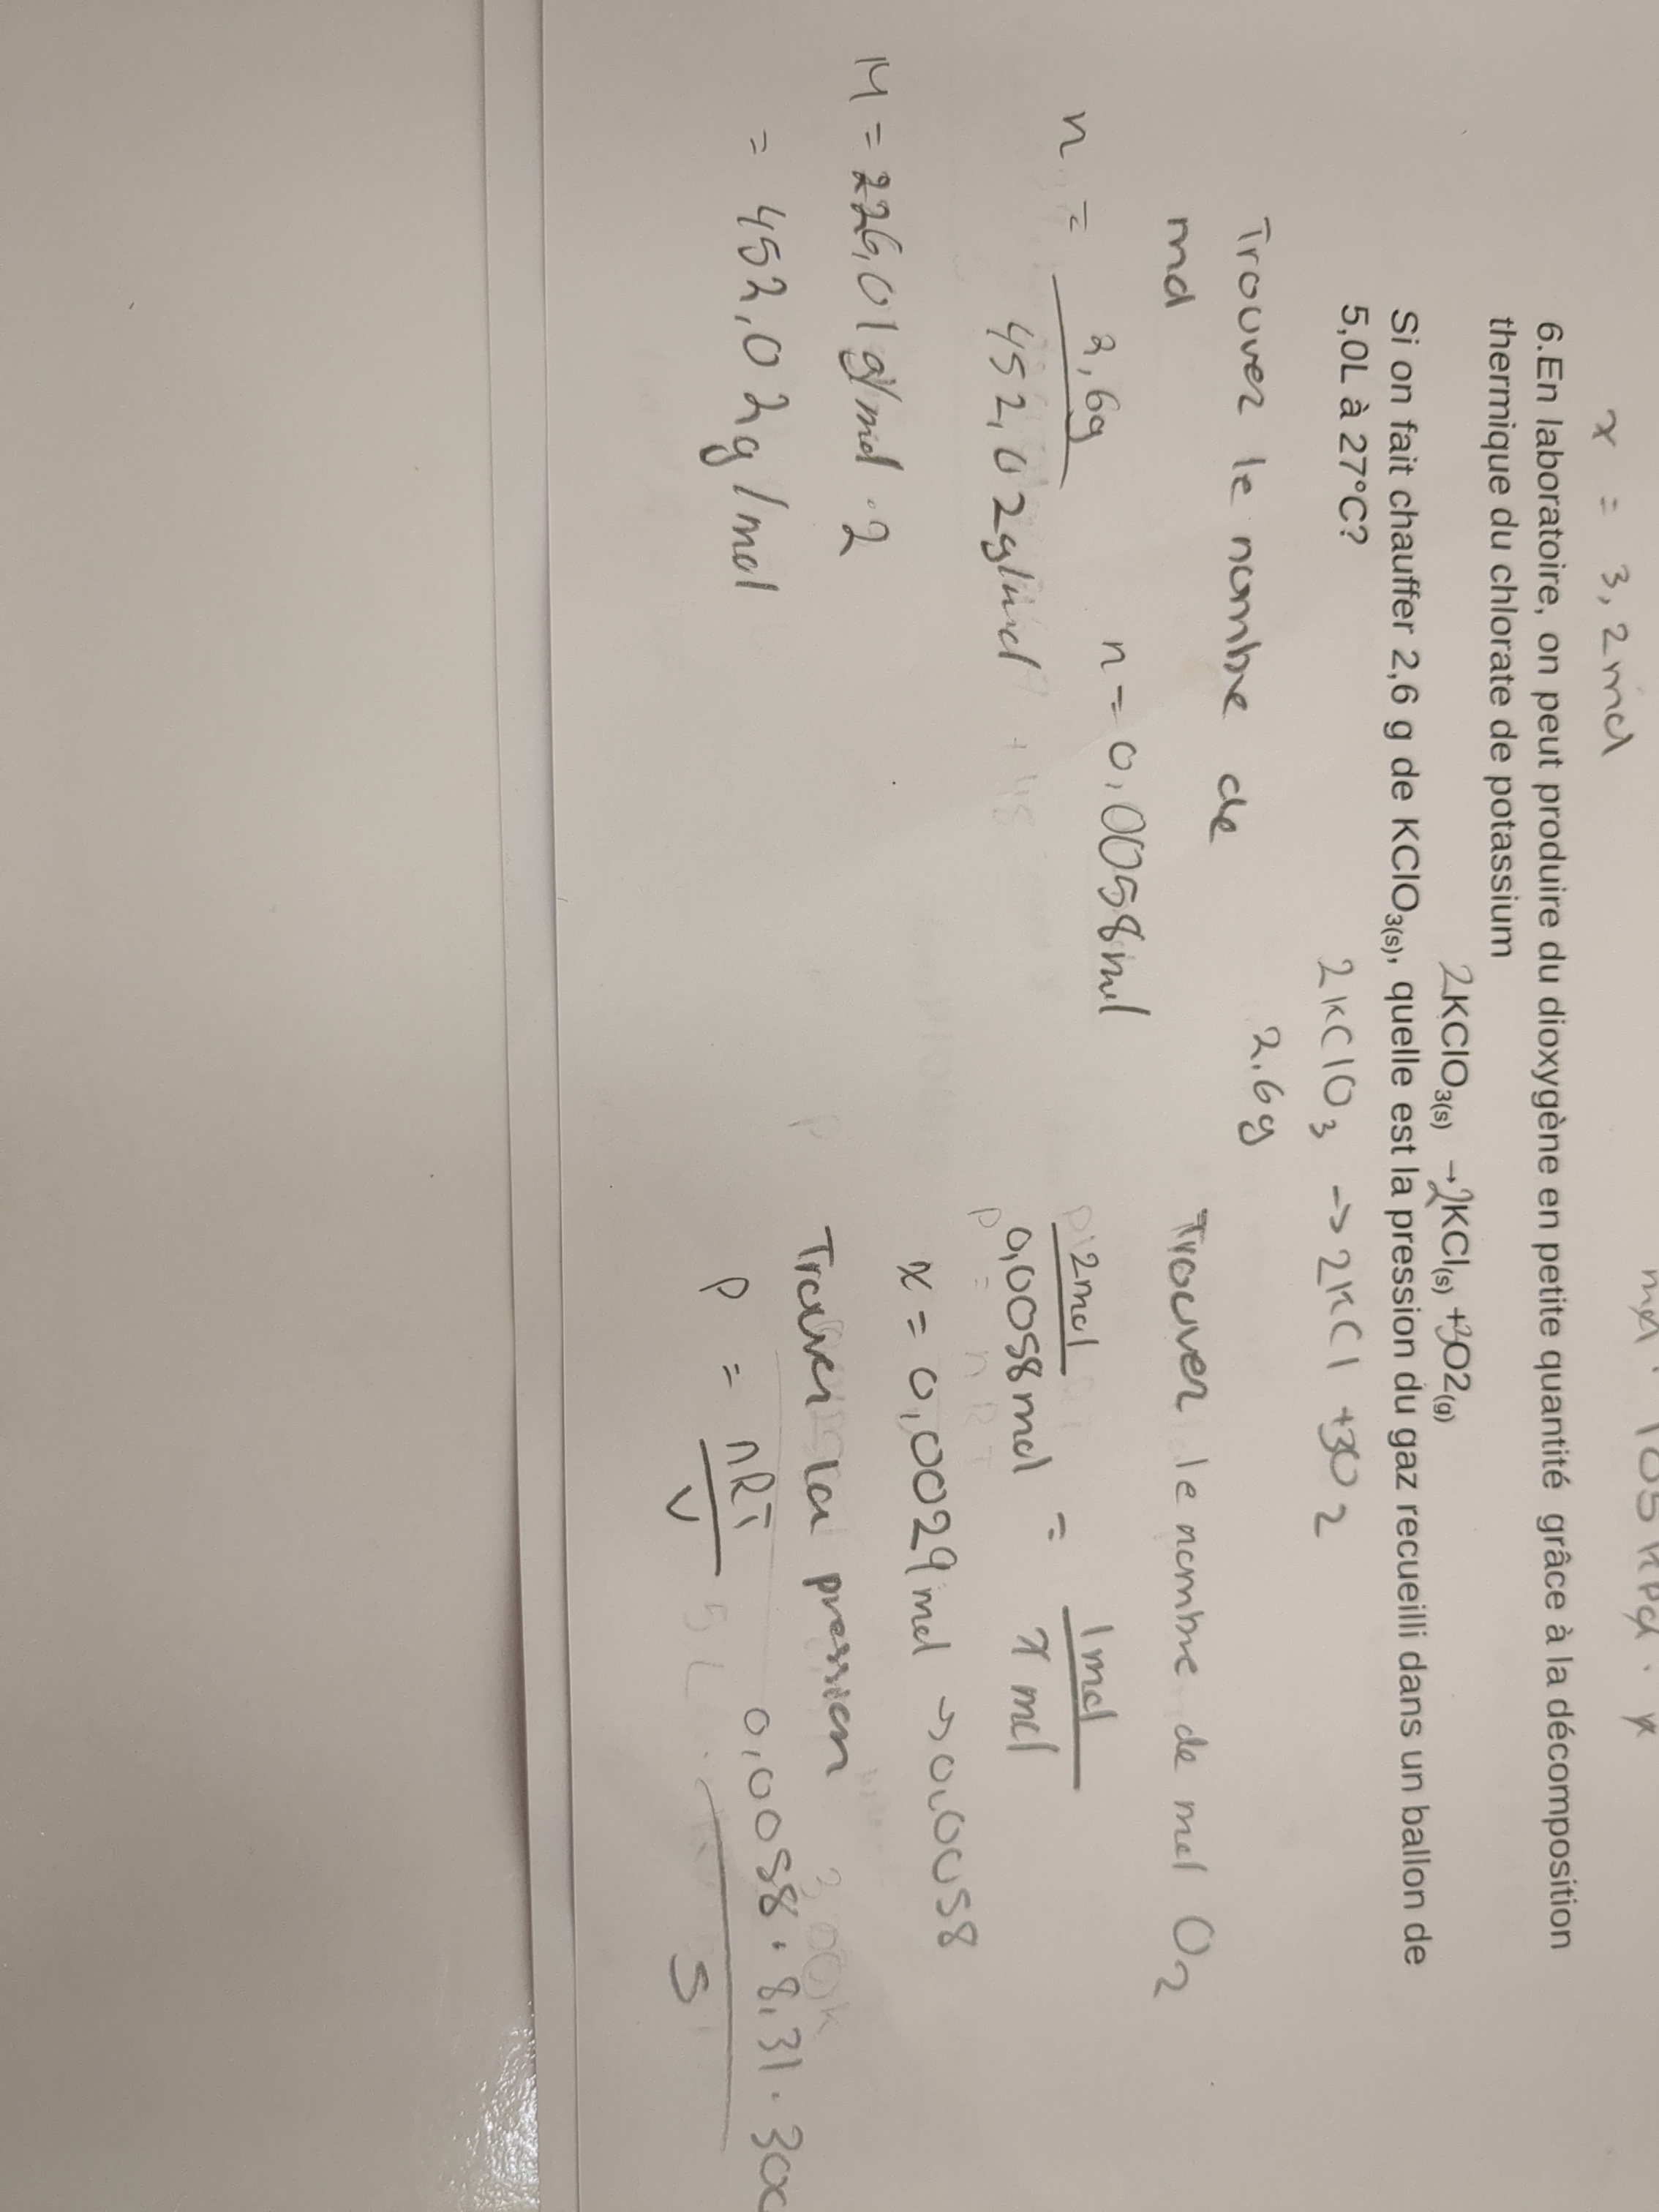 x = 3,2mol
105 kPa . x
6.En laboratoire, on peut produire du dioxygène en petite quantité grâce à la décomposition
thermique du chlorate de potassium
2KClO3(s) →2KCl(s) +3O2(g)
Si on fait chauffer 2,6 g de KClO3(s), quelle est la pression du gaz recueilli dans un ballon de
5,0L à 27°C?
2KClO3 → 2KCl +3O2
2,6g
Trouver le nombre de
mol
n = 2,6g
452,02g/mol
n = 0,0058mol
M = 226,01g/mol . 2
= 452,02g/mol
Trouver le nombre de mol O2
2mol = 1mol
0,0058mol x mol
x = 0,0029mol → 0,0058
Trouver la pression
P = nRT
V
300K
0,0058 . 8,31 . 300
5